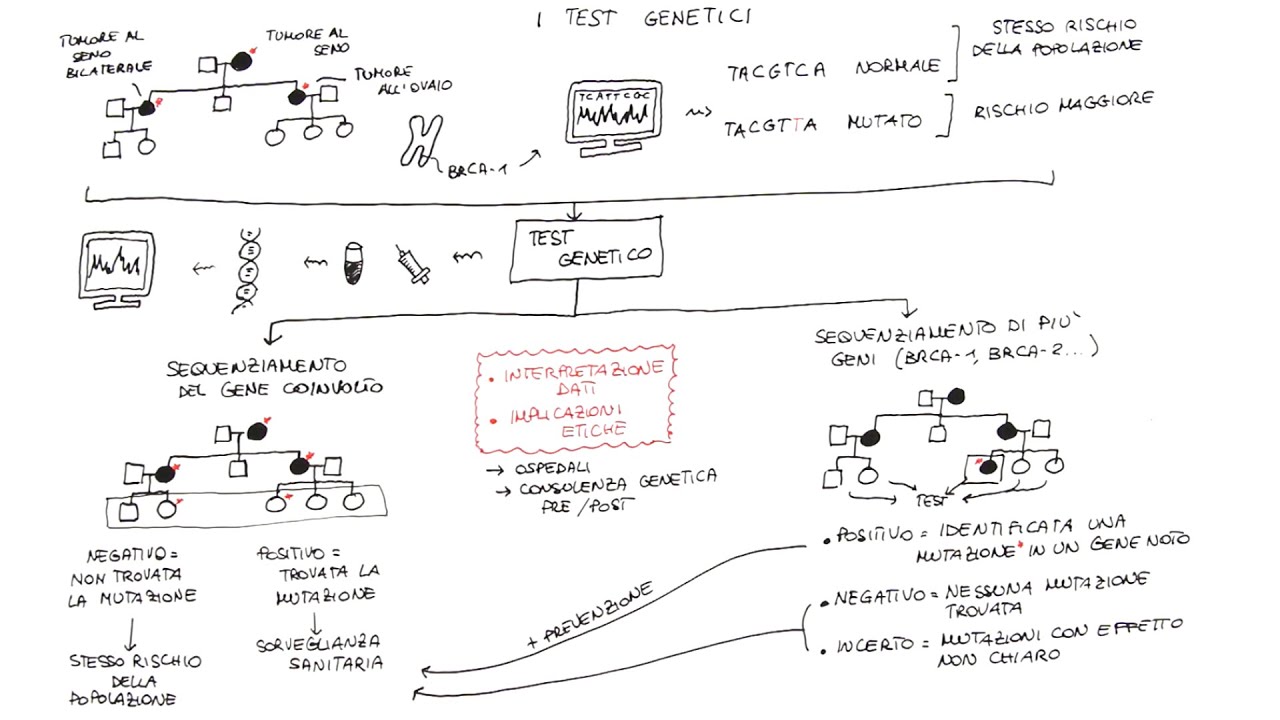 I TEST GENETICI
TUMORE AL
SENO
BILATERALE
TUMORE AL
SENO
TUMORE
ALL'OVAIO
BRCA-1
TCATTCGC
TACGTCA NORMALE
STESSO RISCHIO
DELLA POPOLAZIONE
TACGTTA MUTATO
RISCHIO MAGGIORE
TEST
GENETICO
SEQUENZIAMENTO
DEL GENE COINVOLTO
NEGATIVO =
NON TROVATA
LA MUTAZIONE
STESSO RISCHIO
DELLA
POPOLAZIONE
POSITIVO =
TROVATA LA
MUTAZIONE
SORVEGLIANZA
SANITARIA
• INTERPRETAZIONE
DATI
• IMPLICAZIONI
ETICHE
→ OSPEDALI
→ CONSULENZA GENETICA
PRE/POST
SEQUENZIAMENTO DI PIU'
GENI (BRCA-1, BRCA-2...)
TEST
• POSITIVO = IDENTIFICATA UNA
MUTAZIONE* IN UN GENE NOTO
• NEGATIVO = NESSUNA MUTAZIONE
TROVATA
• INCERTO = MUTAZIONI CON EFFETTO
NON CHIARO
+ PREVENZIONE